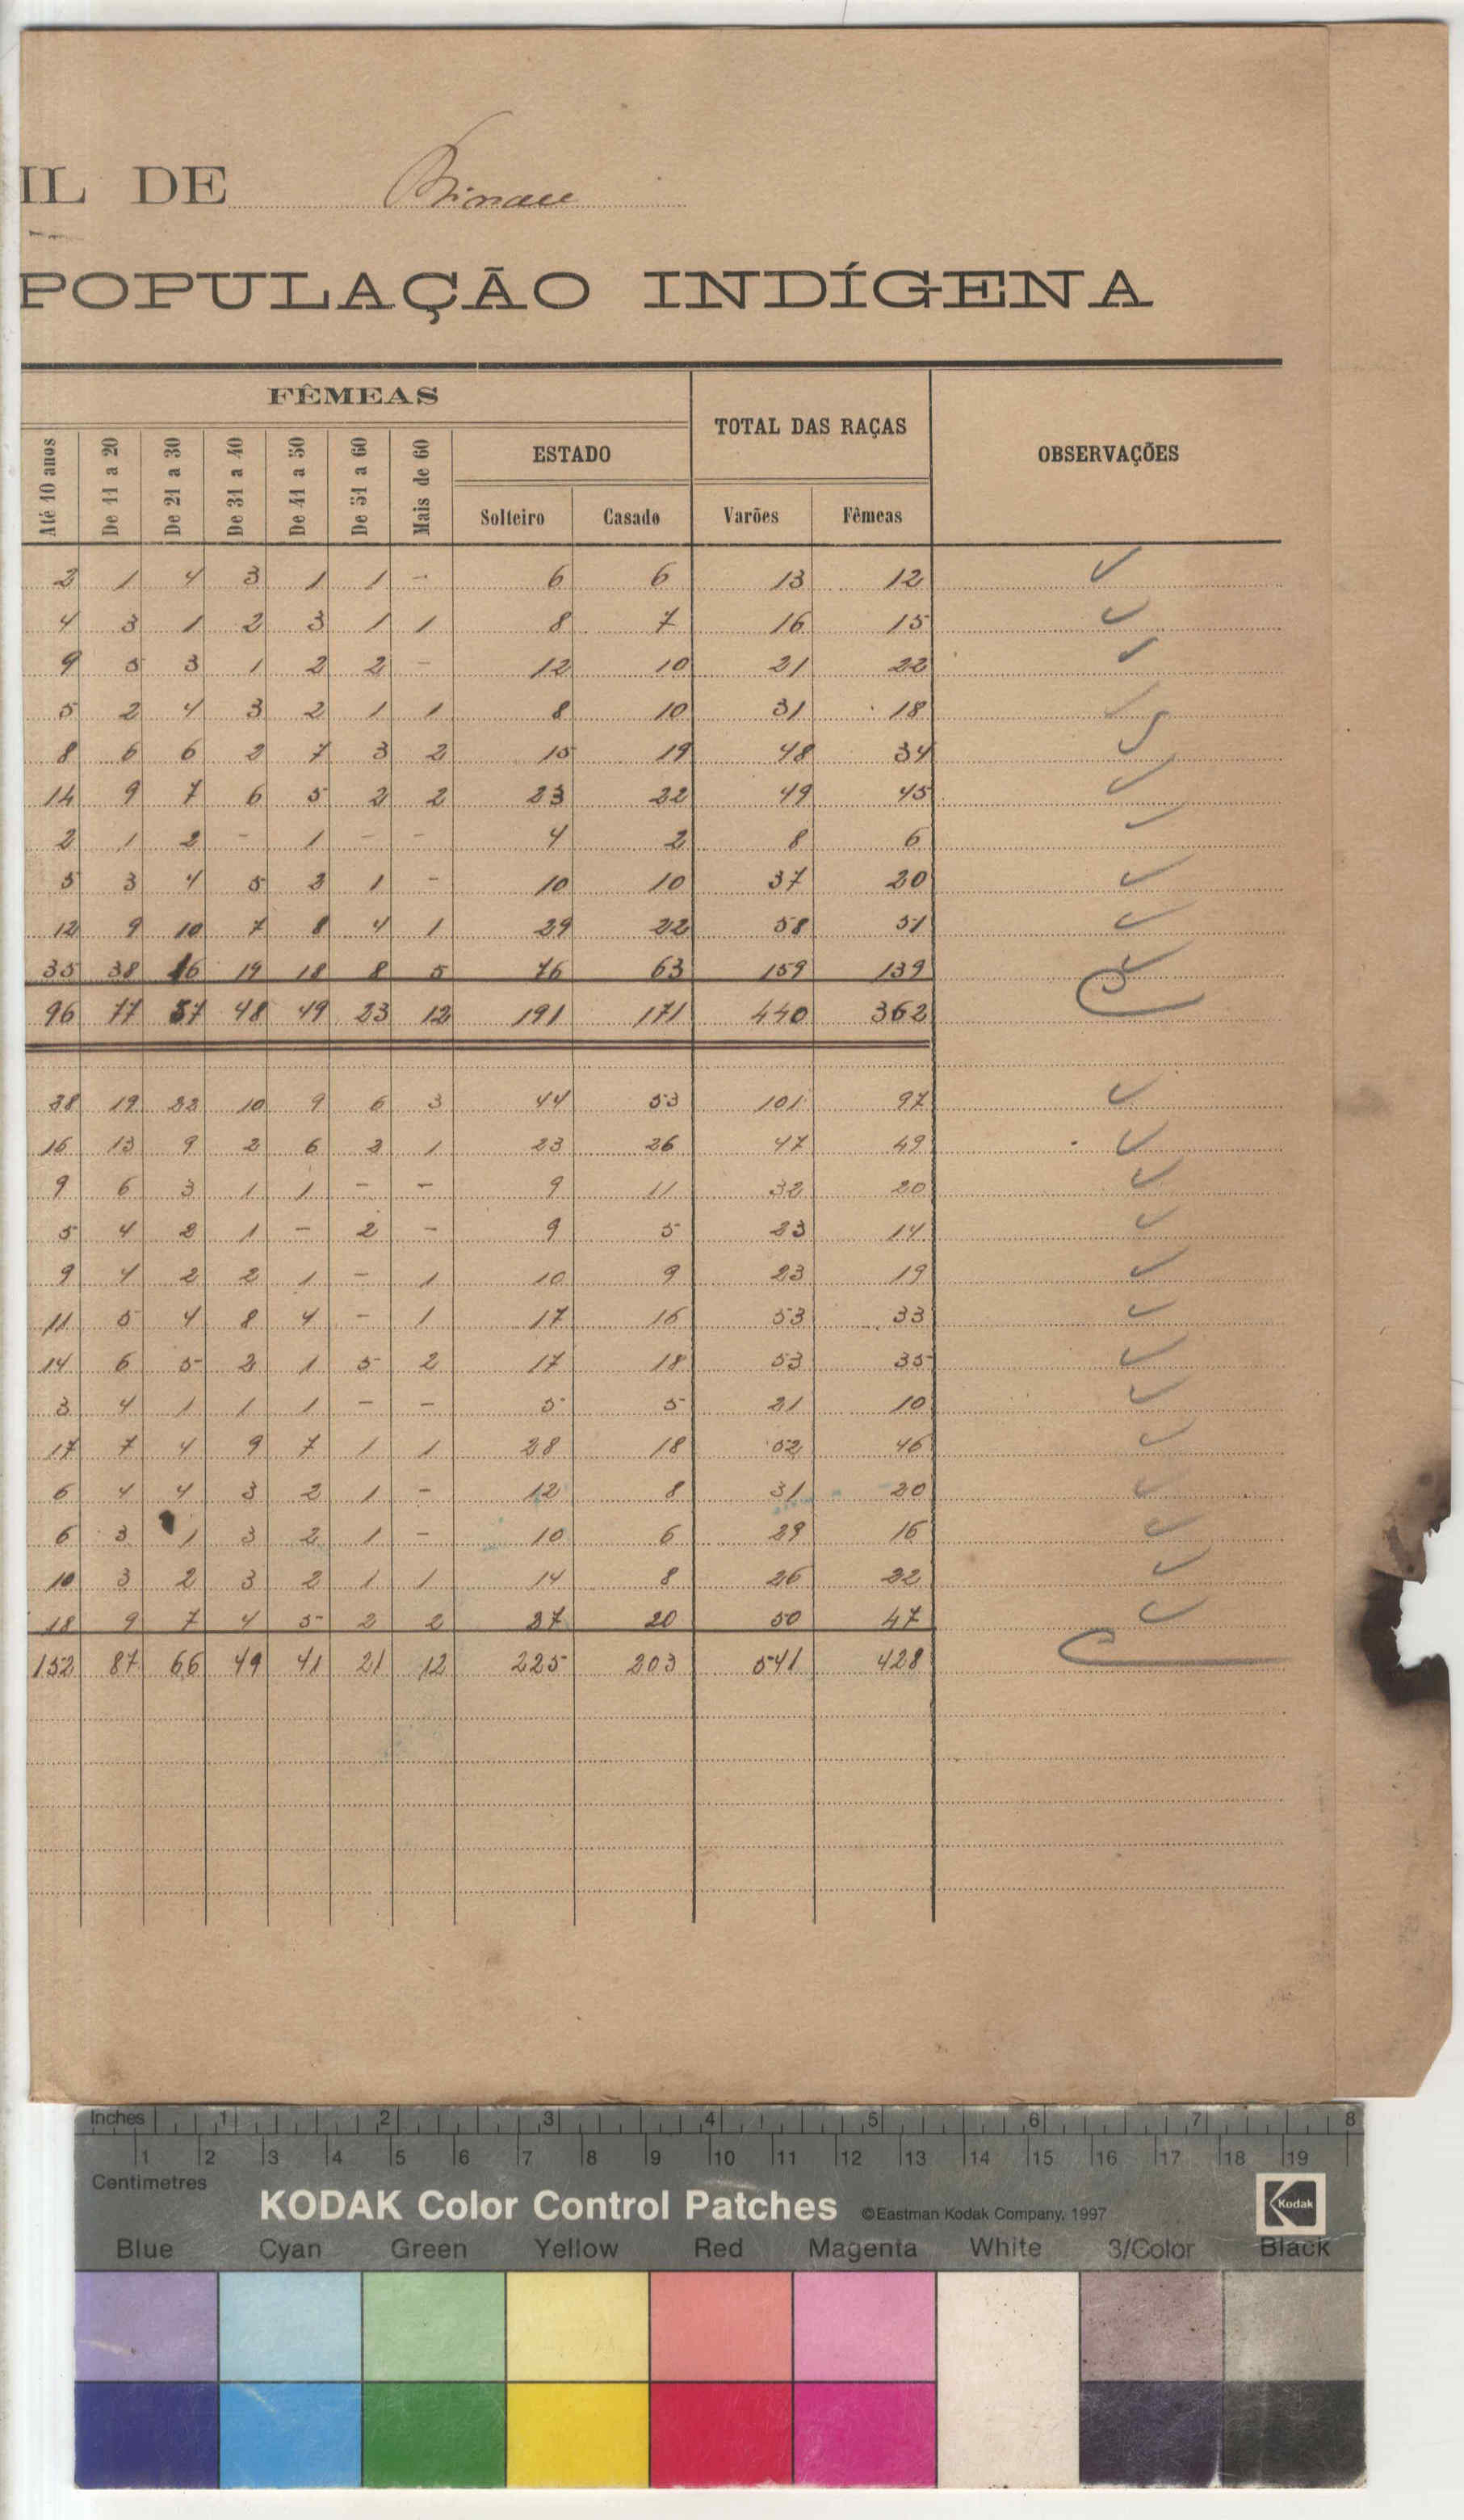 IL DE
POPULAÇÃO INDÍGENA
FÊMEAS
TOTAL DAS RAÇAS
OBSERVAÇÕES
Até 10 anos De 11 a 20 De 21 a 30 De 31 a 40 De 41 a 50 De 51 a 60 Mais de 60 ESTADO
Solteiro Casado Varões Fêmeas
2 1 4 3 1 1 - 6 6 13 12 ✓
4 3 1 2 3 1 1 8 7 16 15 ✓
9 5 3 1 2 2 - 12 10 21 22 ✓
5 2 4 3 2 1 1 8 10 31 18 ✓
8 6 6 2 7 3 2 15 19 48 34 ✓
14 9 7 6 5 2 2 23 22 49 45 ✓
2 1 2 - 1 - - 4 2 8 6 ✓
5 3 4 5 2 1 - 10 10 37 20 ✓
12 9 10 7 8 4 1 29 22 58 51 ✓
35 38 16 19 18 8 5 76 63 159 139 ✓
96 77 57 48 49 23 12 191 171 440 362
28 19 22 10 9 6 3 44 53 101 97 ✓
16 13 9 2 6 2 1 23 26 47 49 ✓
9 6 3 1 1 - - 9 11 32 20 ✓
5 4 2 1 - 2 - 9 5 23 14 ✓
9 4 2 2 1 - 1 10 9 23 19 ✓
11 5 4 8 4 - 1 17 16 53 33 ✓
14 6 5 2 1 5 2 17 18 53 35 ✓
3 4 1 1 1 - - 5 5 21 10 ✓
17 7 4 9 7 1 1 28 18 52 46 ✓
6 4 4 3 2 1 - 12 8 31 20 ✓
6 3 1 3 2 1 - 10 6 29 16 ✓
10 3 2 3 2 1 1 14 8 26 22 ✓
18 9 7 4 5 2 2 27 20 50 47 ✓
152 87 66 49 41 21 12 225 203 541 428
Inches 1 2 3 4 5 6 7 8
1 2 3 4 5 6 7 8 9 10 11 12 13 14 15 16 17 18 19
Centimetres
KODAK Color Control Patches ©Eastman Kodak Company, 1997 Kodak
Blue Cyan Green Yellow Red Magenta White 3/Color Black